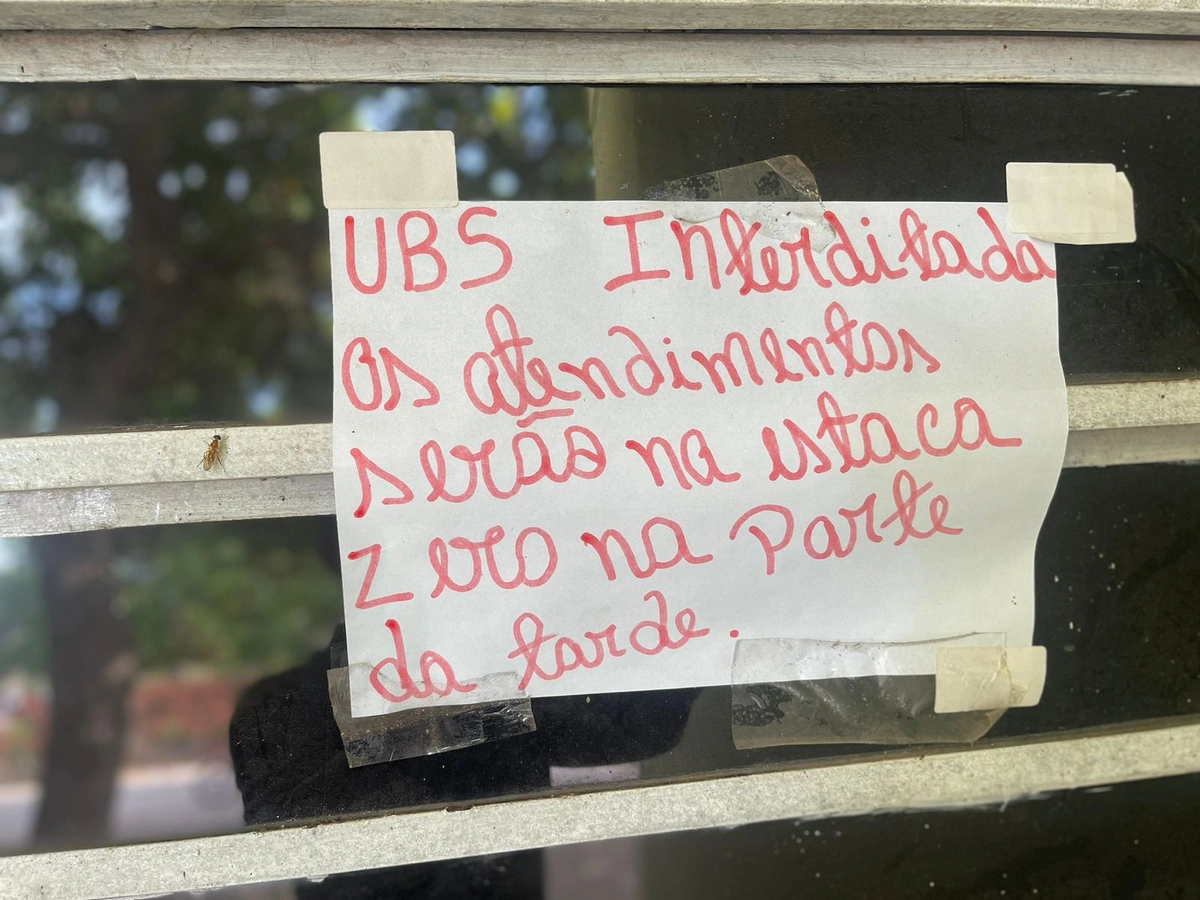 UBS Interditada
Os atendimentos
serão na estaca
zero na parte
da tarde.